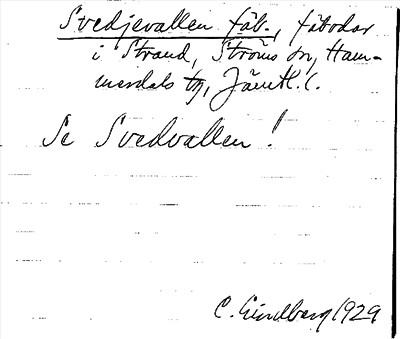 Svedjevallen fäb., fäbodar
i Strand, Ströms sn, Ham-
merdals tg, Jämtl. l.
Se Svedvallen!
C. Lindberg 1929